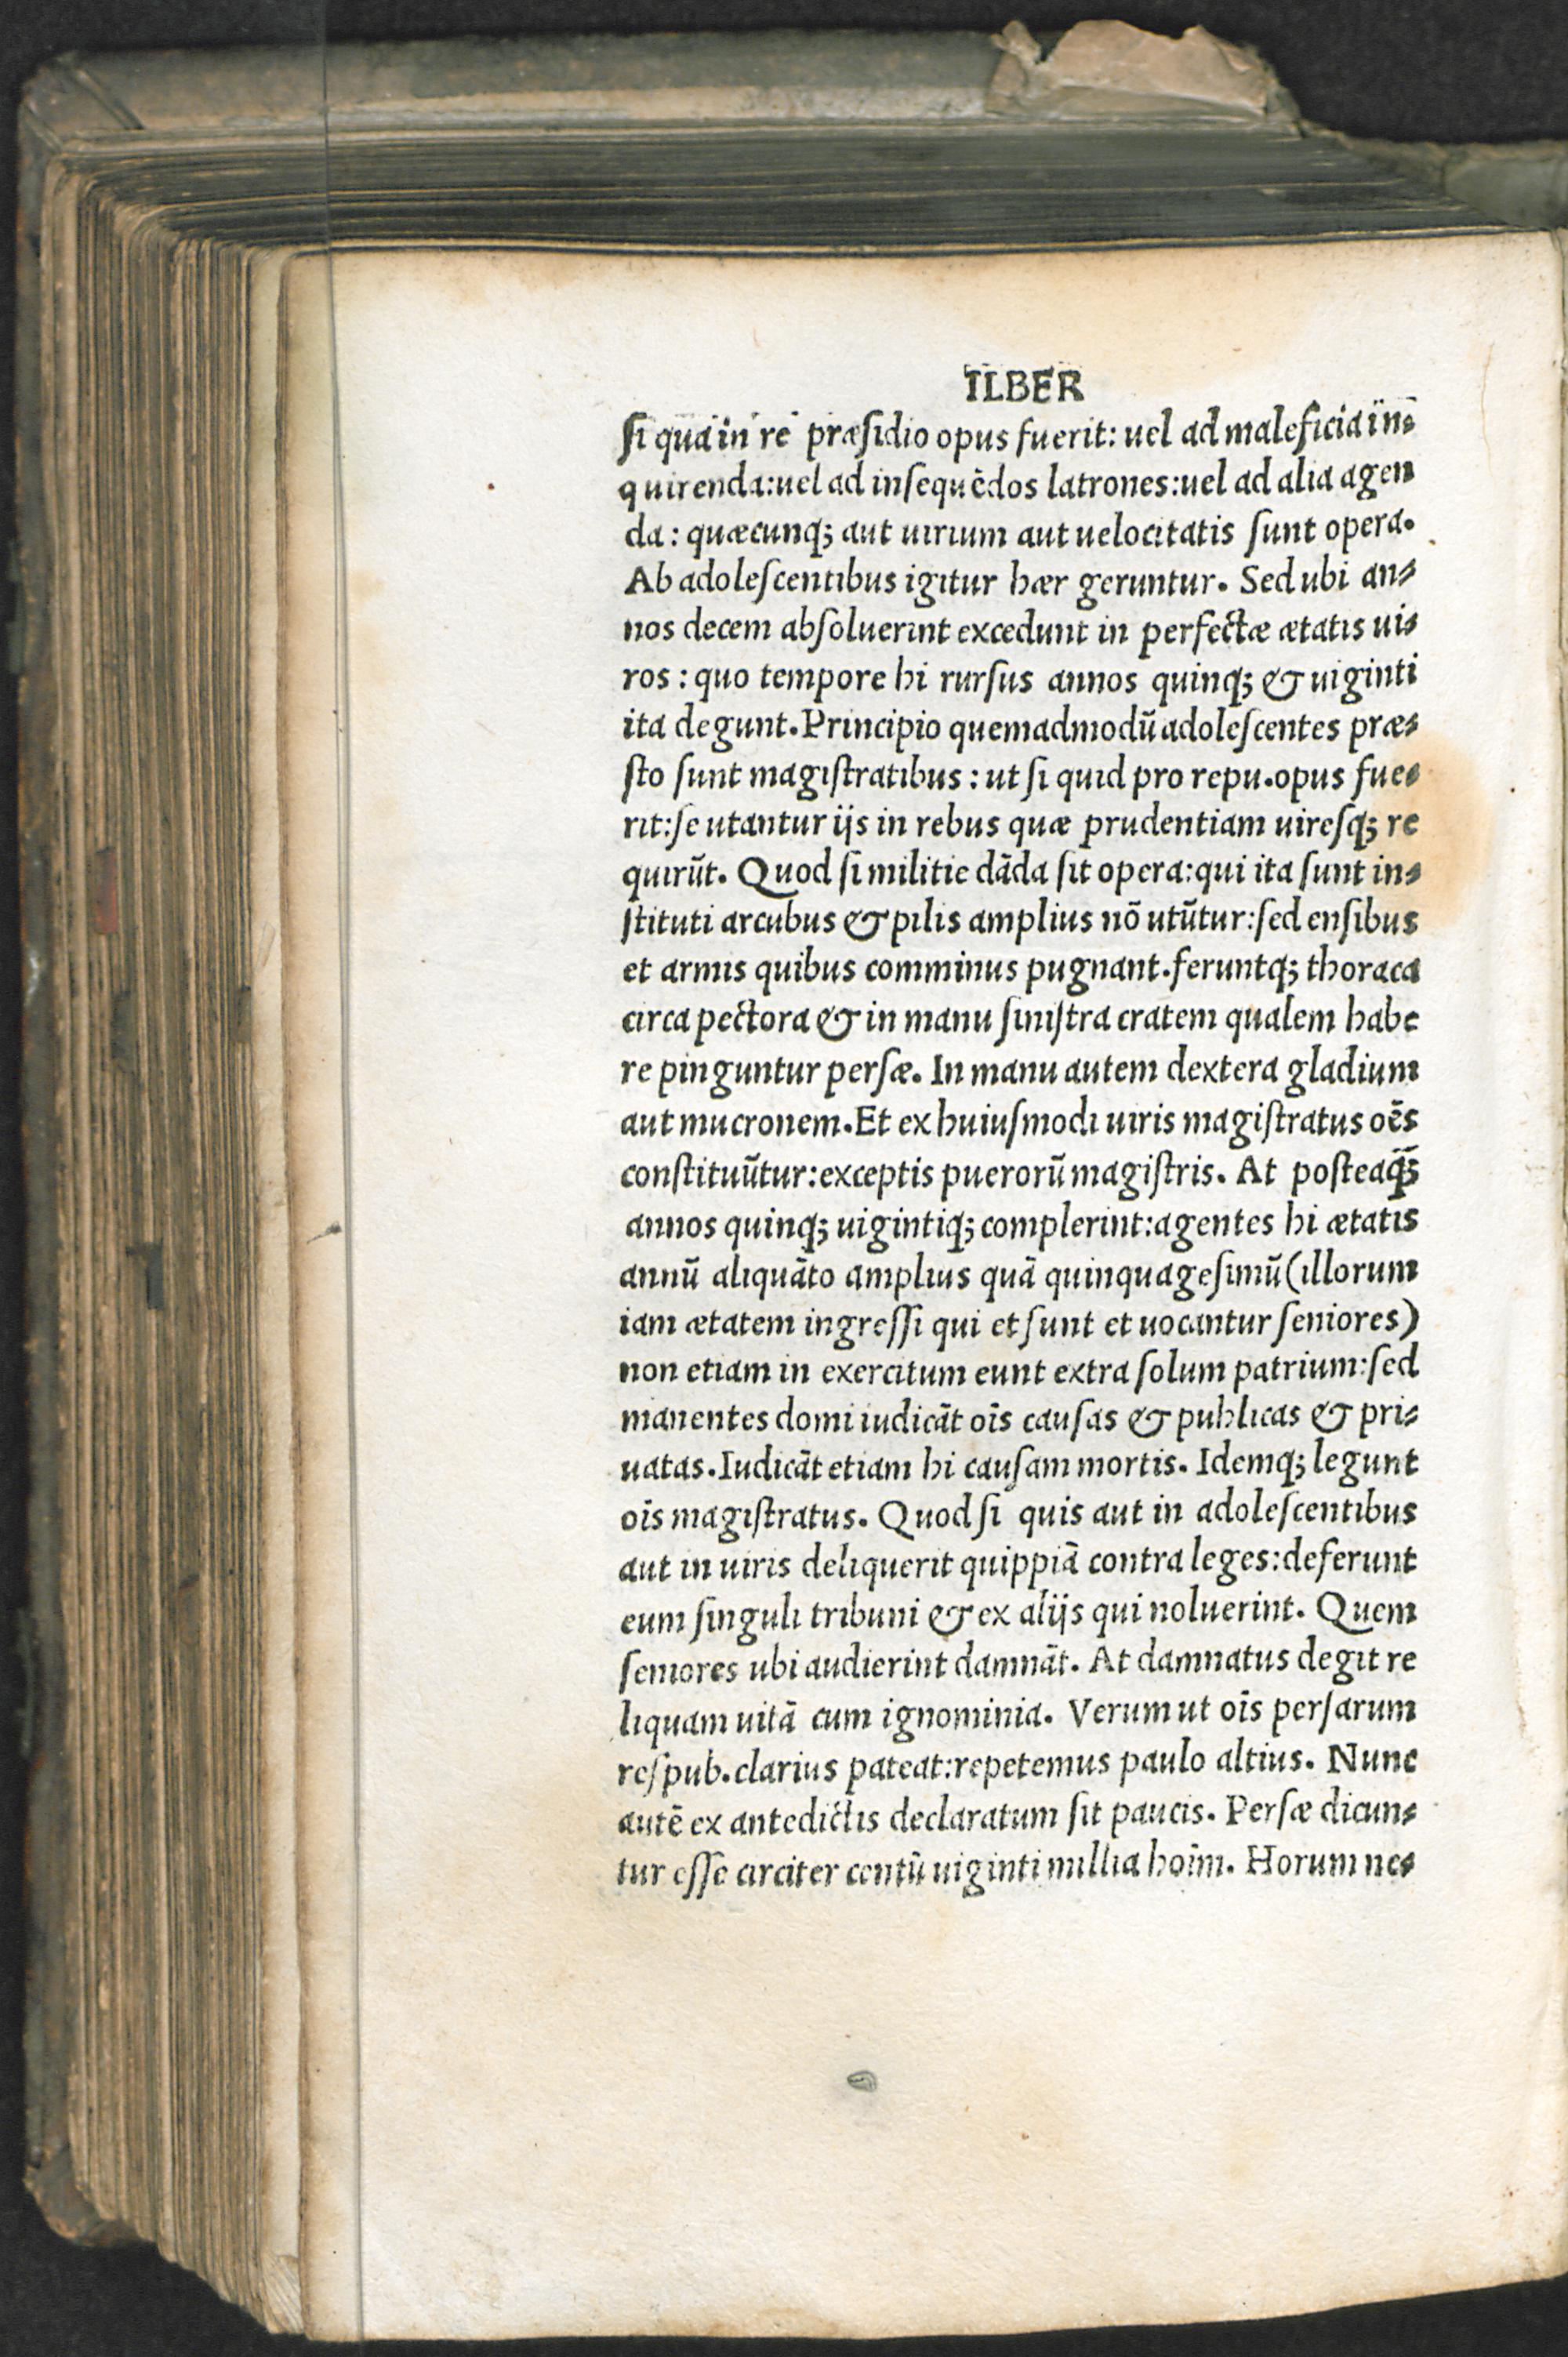 ILBER
ſi qua in re præſidio opus fuerit: uel ad maleficia in⸗
quirenda:uel ad inſequēdos latrones:uel ad alia agen
da: quæcunq; aut uirium aut uelocitatis ſunt opera.
Ab adoleſcentibus igitur hær geruntur. Sed ubi an⸗
nos decem abſoluerint excedunt in perfectæ ætatis ui⸗
ros: quo tempore hi rurſus annos quinq; & uiginti
ita degunt. Principio quemadmodū adoleſcentes præ⸗
ſto ſunt magiſtratibus: ut ſi quid pro repu. opus fue⸗
rit:ſe utantur ijs in rebus quæ prudentiam uireſq; re
quirūt. Quod ſi militie dāda ſit opera:qui ita ſunt in⸗
ſtituti arcubus & pilis amplius nō utūtur:ſed enſibus
et armis quibus comminus pugnant. feruntq; thoraca
circa pectora & in manu ſiniſtra cratem qualem habe
re pinguntur perſæ. In manu autem dextera gladium
aut mucronem. Et ex huiuſmodi uiris magiſtratus oēs
conſtituūtur:exceptis puerorū magiſtris. At poſteaq̄;
annos quinq; uigintiq; complerint:agentes hi ætatis
annū aliquāto amplius quā quinquageſimū (illorum
iam ætatem ingreſſi qui et ſunt et uocantur ſeniores)
non etiam in exercitum eunt extra ſolum patrium:ſed
manentes domi iudicāt oīs cauſas & publicas & pri⸗
uatas. Iudicāt etiam hi cauſam mortis. Idemq; legunt
oīs magiſtratus. Quod ſi quis aut in adoleſcentibus
aut in uiris deliquerit quippiā contra leges:deferunt
eum ſinguli tribuni & ex alijs qui noluerint. Quem
ſeniores ubi audierint damnāt. At damnatus degit re
liquam uitā cum ignominia. Verum ut oīs perſarum
reſpub. clarius pateat:repetemus paulo altius. Nunc
autē ex antedictis declaratum ſit paucis. Perſæ dicun⸗
tur eſſe circiter centū uiginti millia hoīm. Horum ne⸗